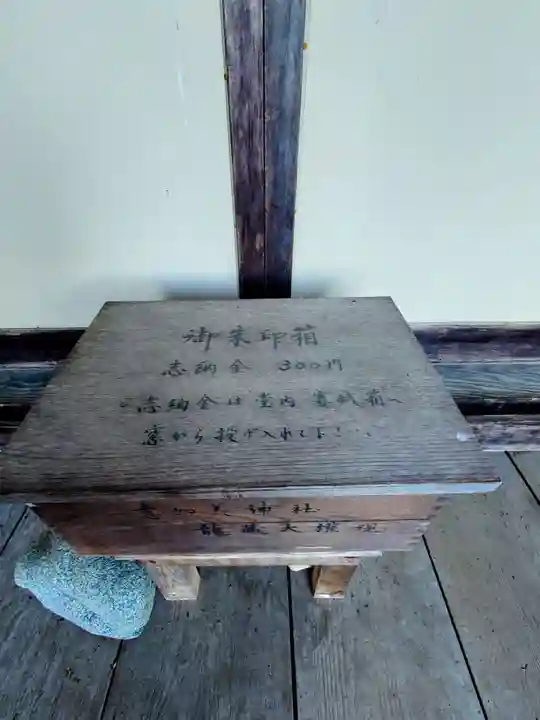 御朱印箱
志納金 300円
○志納金は堂内賽銭箱へ
窓から投げ入れて下さい
神社
龍蔵大権現